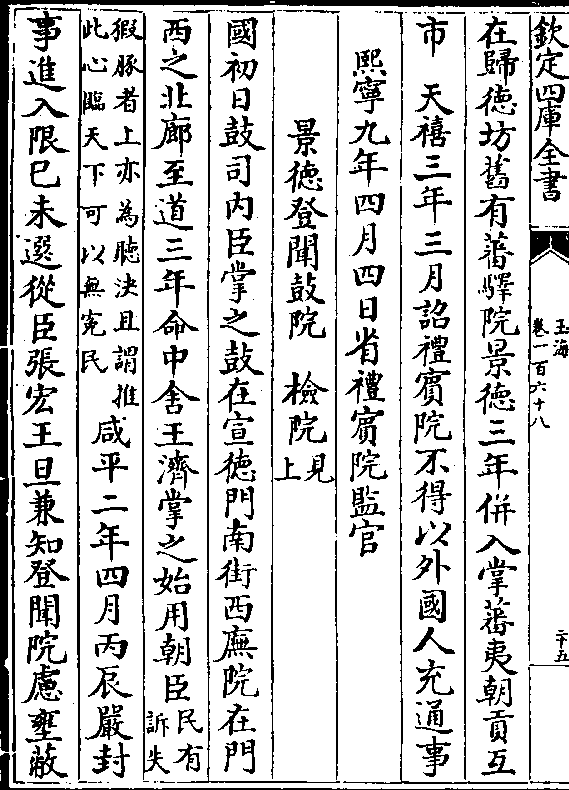 欽定四庫全書
玉海
卷一百六十八
二十五
在歸徳坊舊有蕃驛院景徳三年併入掌蕃夷朝貢互
市　天禧三年三月詔禮賓院不得以外國人充通事
熙寧九年四月四日省禮賓院監官
景徳登聞鼓院　檢院見上
國初日鼓司内臣掌之鼓在宣徳門南街西廡院在門
西之北廊至道三年命中舍王濟掌之始用朝臣民有訴失
猳豚者上亦為聴決且謂推此心臨天下可以無寃民咸平二年四月丙辰嚴封
事進入限巳未選從臣張宏王旦兼知登聞院慮壅蔽